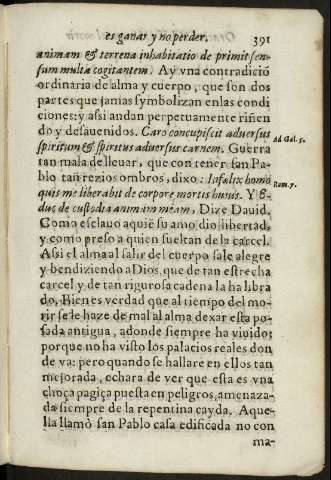 es ganar y no perder. 391
animam & terrena inhabitatio deprimit sen-
sum multa cogitantem. Ay vna contradiciõ
ordinaria de alma y cuerpo, que son dos
partes que jamas symbolizan en las condi
ciones: y assi andan perpetuamente riñen
do y desauenidos. Caro concupiscit aduersus
spiritum & spiritus aduersus carnem. Guerra
Ad Gal. 5.
tan mala de lleuar, que con tener san Pa-
blo tan rezios ombros, dixo: Infœlix homo
quis me liberabit de corpore mortis huius. Y E-
Rom. 7.
duc de custodia animam meam, Dize Dauid.
Como esclauo aquiẽ su amo dio libertad,
y como preso a quien sueltan de la carcel.
Assi el alma al salir del cuerpo sale alegre
y bendiziendo a Dios, que de tan estrecha
carcel y de tan rigurosa cadena la ha libra
do. Bien es verdad que al tiempo del mo-
rir se le haze de mal al alma dexar esta po-
sada antigua, adonde siempre ha viuido:
porque no ha visto los palacios reales don
de va: pero quando se hallare en ellos tan
mejorada, echara de ver que esta es vna
choça pagiça puesta en peligros, amenaza-
da siempre de la repentina cayda. Aque-
lla llamò san Pablo casa edificada no con
ma-